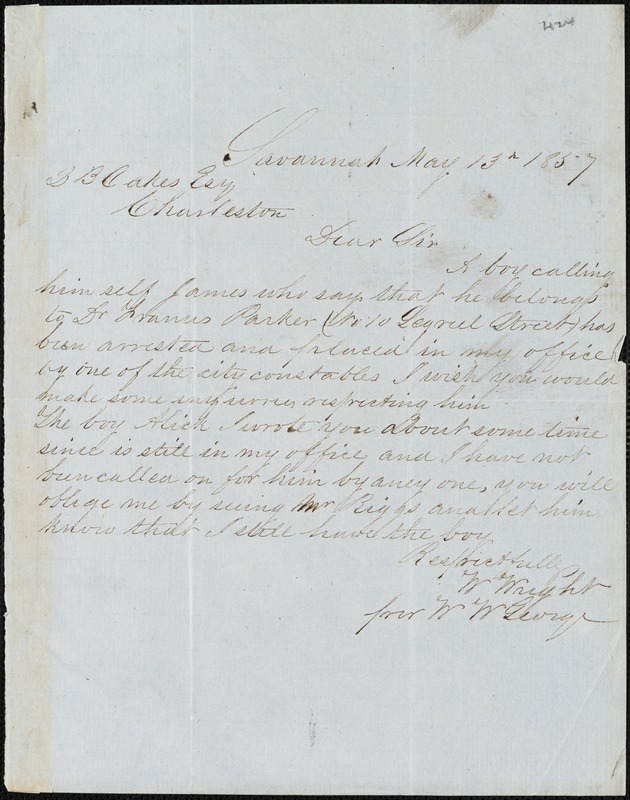 424
Savannah May 13th 1857
Z B Oakes Esq
Charleston
Dear Sir
A boy calling
him self James who says that he belongs
to Dr Francis Parker (No 10 Legreel Street) has
been arrested and placed in my office
by one of the city constables I wish you would
made some inqurries respecting him
The boy Alick I wrote you about some time
since is still in my office and I have not
been called on for him by aney one, you will
oblige me by seeing Mr Riggs and let him
know that I still have the boy
Respectfully
W Wright
prer W W George